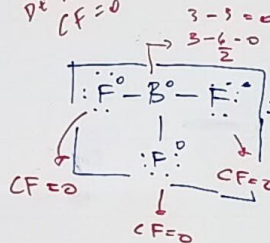 CF=0
3 - 3 = 0
3 - 6/2 = 0
:F° - B° - F:°
:F:°
CF=0
CF=0
CF=0